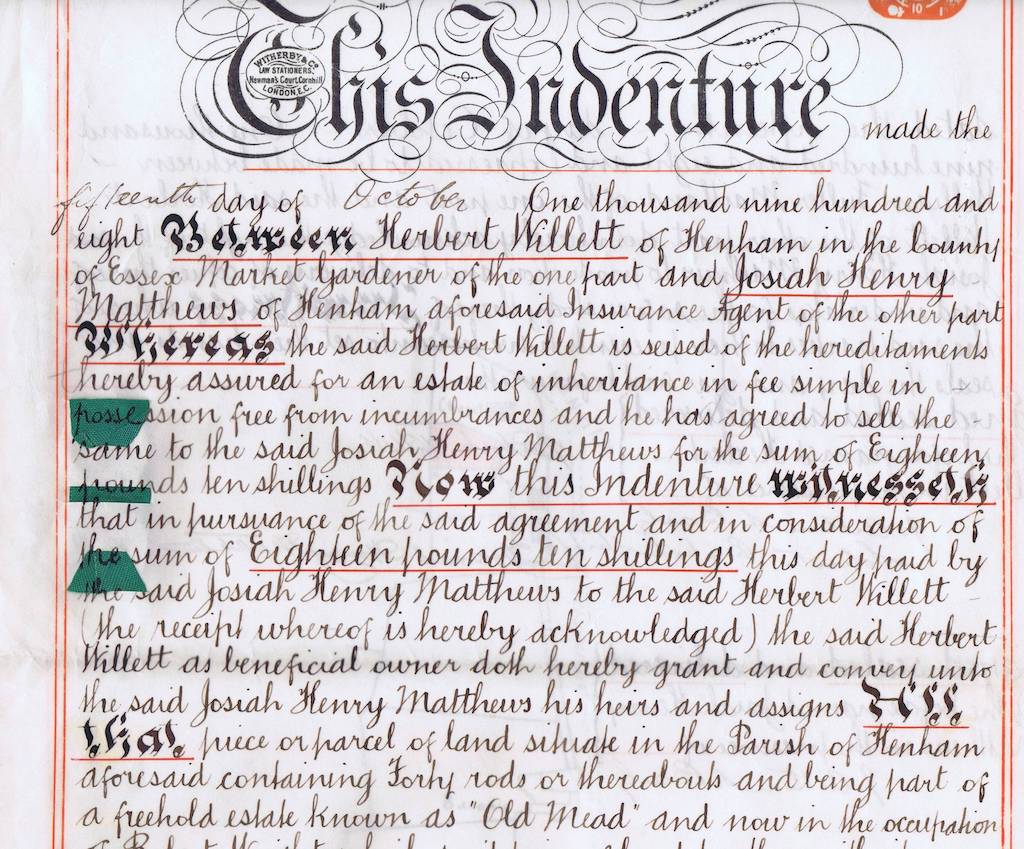 This Indenture made the
WITHERBY & Co
LAW STATIONERS,
Newman's Court, Cornhill
LONDON, E.C.
10
fifteenth day of October One thousand nine hundred and
eight Between Herbert Willett of Henham in the County
of Essex Market Gardener of the one part and Josiah Henry
Matthews of Henham aforesaid Insurance Agent of the other part
Whereas the said Herbert Willett is seised of the hereditaments
hereby assured for an estate of inheritance in fee simple in -
possession free from incumbrances and he has agreed to sell the -
same to the said Josiah Henry Matthews for the sum of Eighteen
pounds ten shillings Now this Indenture witnesseth
that in pursuance of the said agreement and in consideration of
the sum of Eighteen pounds ten shillings this day paid by
the said Josiah Henry Matthews to the said Herbert Willett -
(the receipt whereof is hereby acknowledged) the said Herbert
Willett as beneficial owner doth hereby grant and convey unto
the said Josiah Henry Matthews his heirs and assigns All
that piece or parcel of land situate in the Parish of Henham
aforesaid containing Forty rods or thereabouts and being part of
a freehold estate known as "Old Mead" and now in the occupation
of Robert